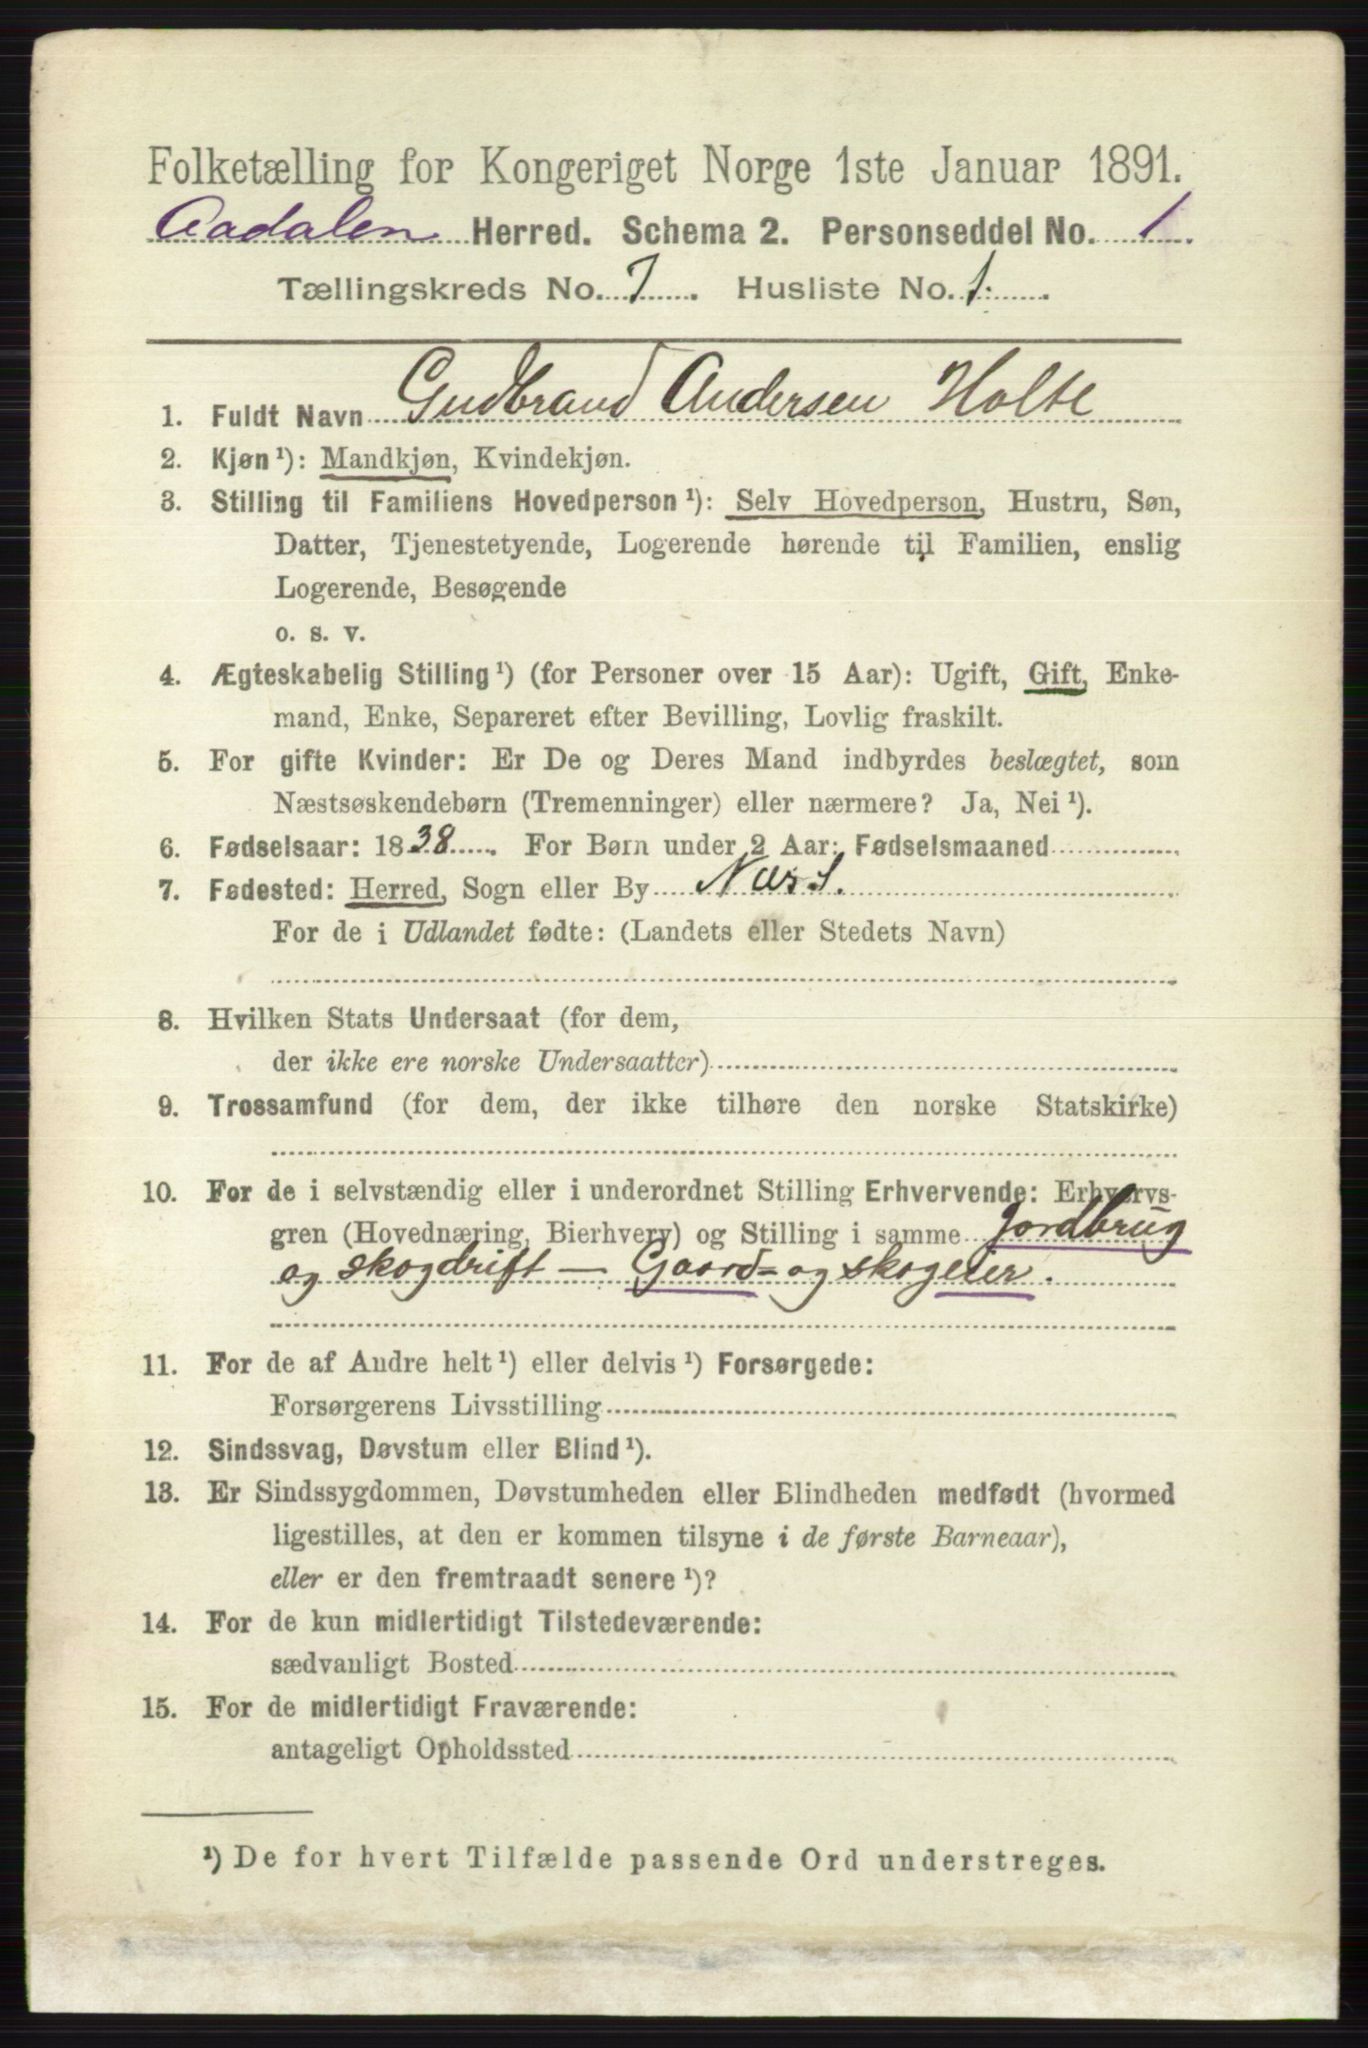 Folketælling for Kongeriget Norge 1ste Januar 1891.
Aadalen Herred. Schema 2. Personseddel No. 1
Tællingskreds No. 7. Husliste No. 1.
1. Fuldt Navn Gudbrand Andersen Holte
2. Kjøn ¹): Mandkjøn, Kvindekjøn.
3. Stilling til Familiens Hovedperson ¹): Selv Hovedperson, Hustru, Søn,
Datter, Tjenestetyende, Logerende hørende til Familien, enslig
Logerende, Besøgende
o. s. v.
4. Ægteskabelig Stilling ¹) (for Personer over 15 Aar): Ugift, Gift, Enke-
mand, Enke, Separeret efter Bevilling, Lovlig fraskilt.
5. For gifte Kvinder: Er De og Deres Mand indbyrdes beslægtet, som
Næstsøskendebørn (Tremenninger) eller nærmere? Ja, Nei ¹).
6. Fødselsaar: 1838. For Børn under 2 Aar: Fødselsmaaned
7. Fødested: Herred, Sogn eller By Næs
For de i Udlandet fødte: (Landets eller Stedets Navn)
8. Hvilken Stats Undersaat (for dem,
der ikke ere norske Undersaatter)
9. Trossamfund (for dem, der ikke tilhøre den norske Statskirke)
10. For de i selvstændig eller i underordnet Stilling Erhvervende: Erhvervs-
gren (Hovednæring, Bierhverv) og Stilling i samme Jordbrug
og skogdrift — Gaard- og skogeier.
11. For de af Andre helt ¹) eller delvis ¹) Forsørgede:
Forsørgerens Livsstilling
12. Sindssvag, Døvstum eller Blind ¹).
13. Er Sindssygdommen, Døvstumheden eller Blindheden medfødt (hvormed
ligestilles, at den er kommen tilsyne i de første Barneaar),
eller er den fremtraadt senere ¹)?
14. For de kun midlertidigt Tilstedeværende:
sædvanligt Bosted
15. For de midlertidigt Fraværende:
antageligt Opholdssted
¹) De for hvert Tilfælde passende Ord understreges.